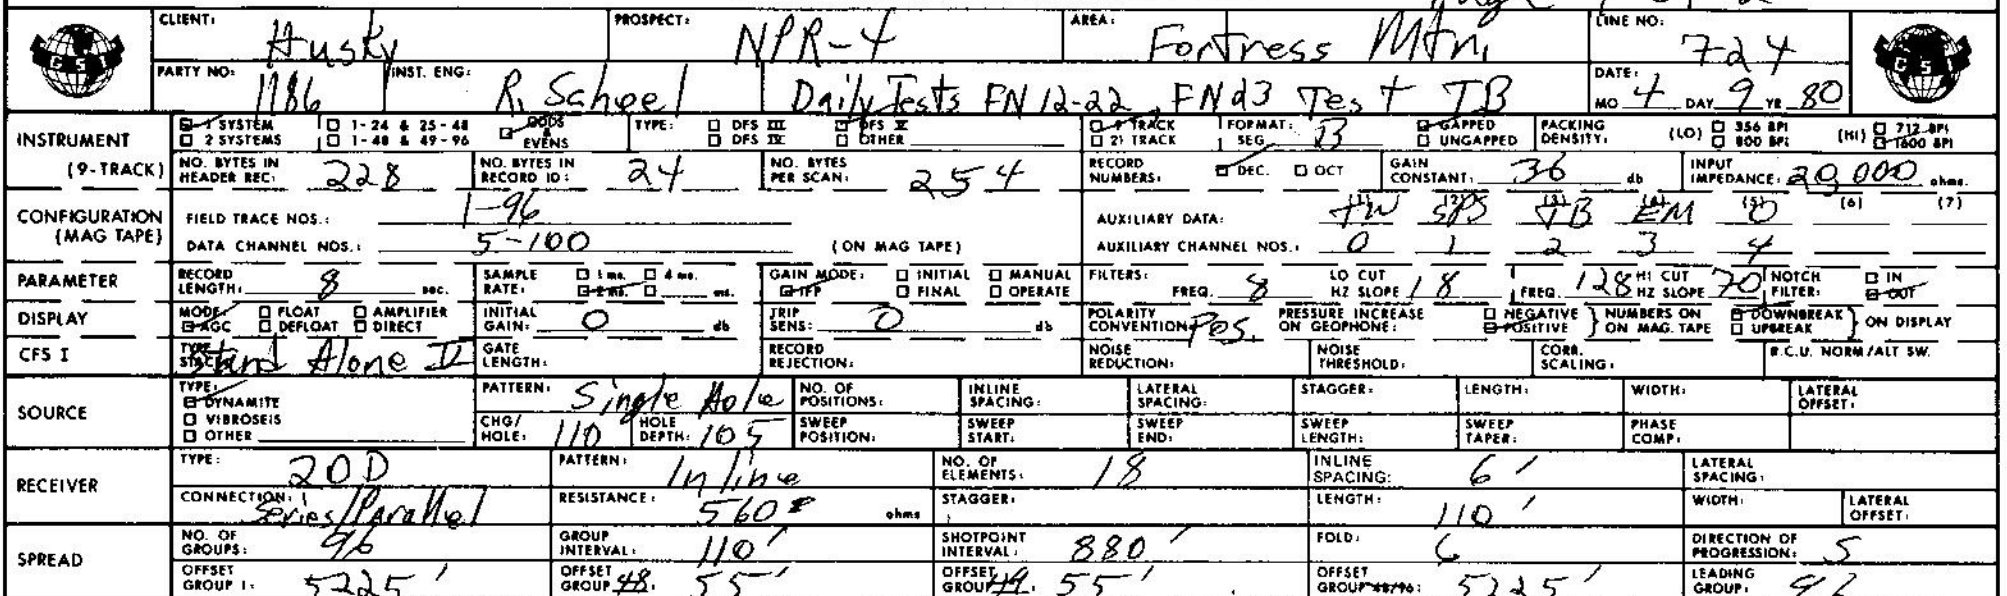 CLIENT: Husky PROSPECT: NPR-4 AREA: Fortress Mtn. LINE NO: 724
GSI
PARTY NO: 1186 INST. ENG: R. Scheel Daily Tests FN 12-22, FN 23 Test TB DATE: MO 4 DAY 9 YR 80
GSI
INSTRUMENT (9-TRACK) 1 SYSTEM 1-24 & 25-48 ODDS & EVENS TYPE: DFS III DFS V 9 TRACK FORMAT: GAPPED PACKING (LO) 356 BPI (HI) 712 BPI
2 SYSTEMS 1-48 & 49-96 DFS IV OTHER 21 TRACK SEG B UNGAPPED DENSITY: 800 BPI 1600 BPI
NO. BYTES IN HEADER REC: 228 NO. BYTES IN RECORD ID: 24 NO. BYTES PER SCAN: 254 RECORD NUMBERS: DEC. OCT GAIN CONSTANT: 36 db INPUT IMPEDANCE: 20,000 ohms.
CONFIGURATION (MAG TAPE) FIELD TRACE NOS.: 1-96 AUXILIARY DATA: (1) TW (2) SPS (3) TB (4) EM (5) 0 (6) (7)
DATA CHANNEL NOS.: 5-100 (ON MAG TAPE) AUXILIARY CHANNEL NOS.: 0 1 2 3 4
PARAMETER RECORD LENGTH: 8 sec. SAMPLE RATE: 1 ms. 4 ms. 2 ms. ms. GAIN MODE: INITIAL MANUAL IFP FINAL OPERATE FILTERS: FREQ. 8 LO CUT HZ SLOPE 18 FREQ. 128 HI CUT HZ SLOPE 70 NOTCH FILTER: IN OUT
DISPLAY MODE: FLOAT AMPLIFIER AGC DEFLOAT DIRECT INITIAL GAIN: 0 db TRIP SENS: 0 db POLARITY CONVENTION: Pos. PRESSURE INCREASE ON GEOPHONE: NEGATIVE POSITIVE NUMBERS ON ON MAG. TAPE DOWNBREAK UPBREAK ON DISPLAY
CFS I TYPE STACK: Stand Alone II GATE LENGTH: RECORD REJECTION: NOISE REDUCTION: NOISE THRESHOLD: CORR. SCALING: R.C.U. NORM/ALT SW.
SOURCE TYPE: DYNAMITE PATTERN: Single Hole NO. OF POSITIONS: INLINE SPACING: LATERAL SPACING: STAGGER: LENGTH: WIDTH: LATERAL OFFSET:
VIBROSEIS OTHER CHG/HOLE: 110 HOLE DEPTH: 105 SWEEP POSITION: SWEEP START: SWEEP END: SWEEP LENGTH: SWEEP TAPER: PHASE COMP:
RECEIVER TYPE: 20D PATTERN: Inline NO. OF ELEMENTS: 18 INLINE SPACING: 6' LATERAL SPACING:
CONNECTION: Series/Parallel RESISTANCE: 560 ohms STAGGER: LENGTH: 110' WIDTH: LATERAL OFFSET:
SPREAD NO. OF GROUPS: 96 GROUP INTERVAL: 110' SHOTPOINT INTERVAL: 880' FOLD: 6 DIRECTION OF PROGRESSION: S
OFFSET GROUP 1: 5225' OFFSET GROUP 48: 55' OFFSET GROUP 49: 55' OFFSET GROUP 48/96: 5225' LEADING GROUP: